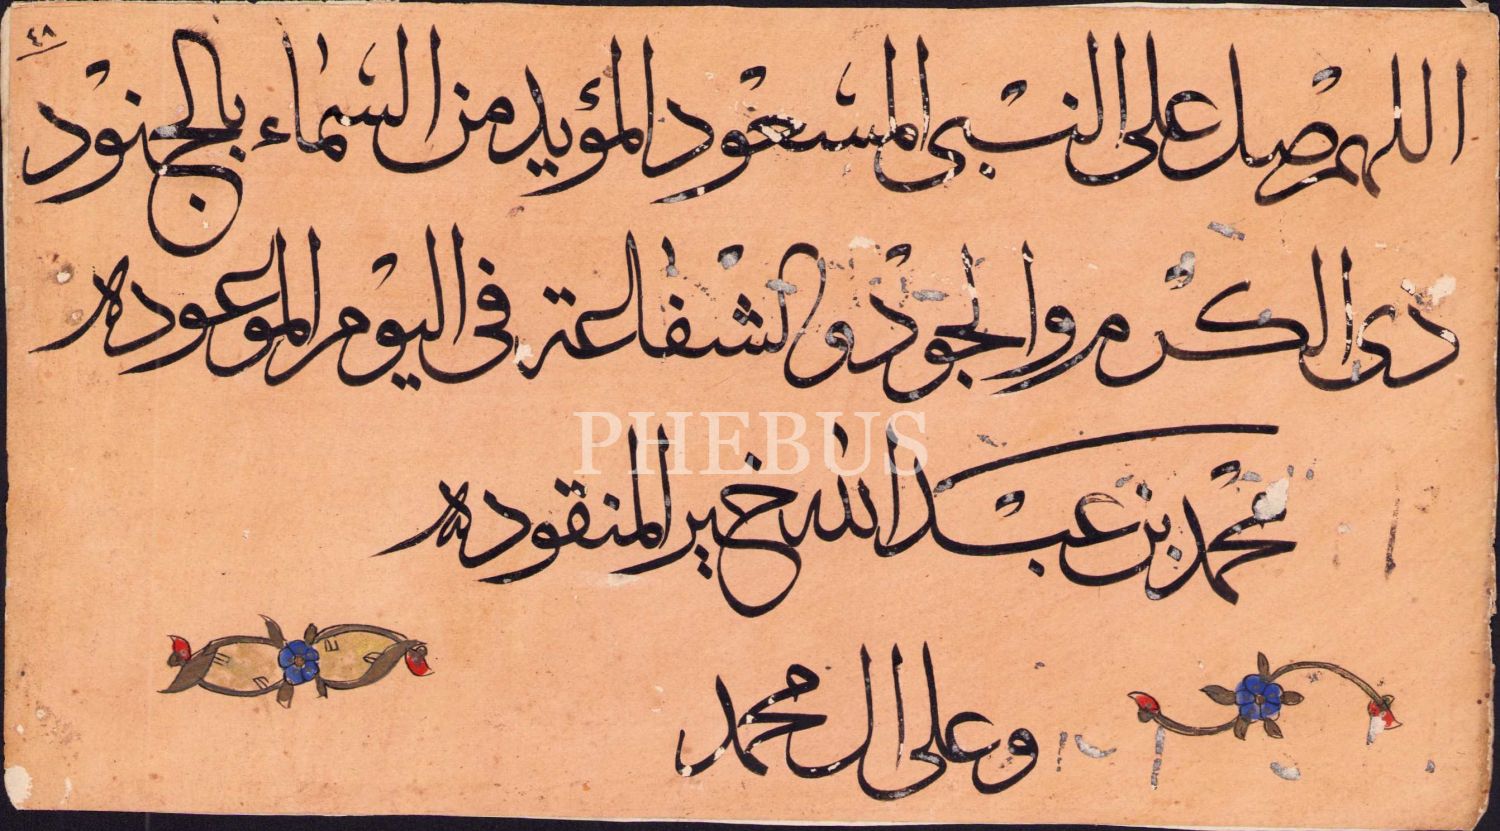 ٤٨
اللهم صل على النبى المسعود المؤيد من السماء بالجنود
ذى الكرم والجود والشفاعة فى اليوم الموعود
PHEBUS
محمد بن عبد الله خير المنقود
وعلى ال محمد